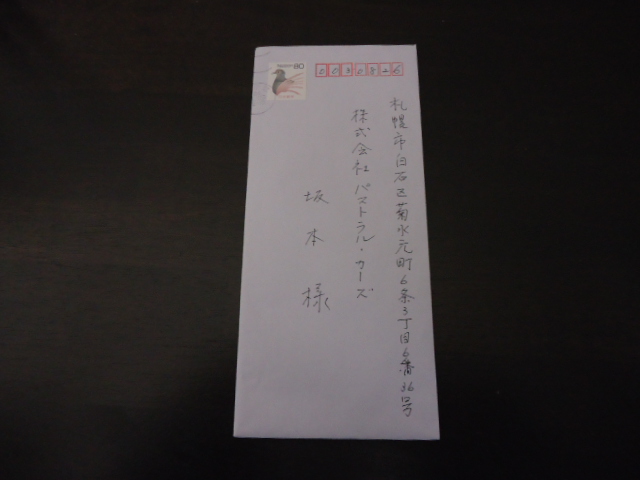 80
0030826
札幌市白石区菊水元町6条3丁目6番36号
株式会社パストラル・カーズ
坂本様